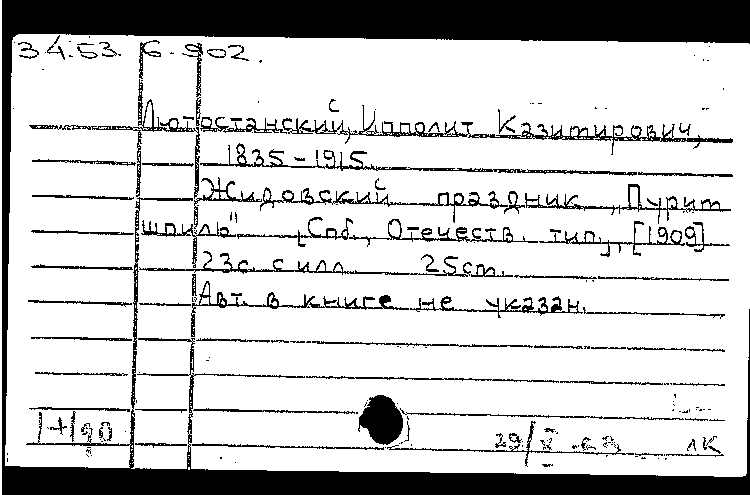 34.53. 6.902.
Лютостанский, Ипполит Казимирович,
1835-1915.
Жидовский праздник „Пурим
шпиль" [Спб., Отечеств. тип., [1909]
23с. с илл. 25cm.
Авт. в книге не указан.
1+190
29/V ЛК